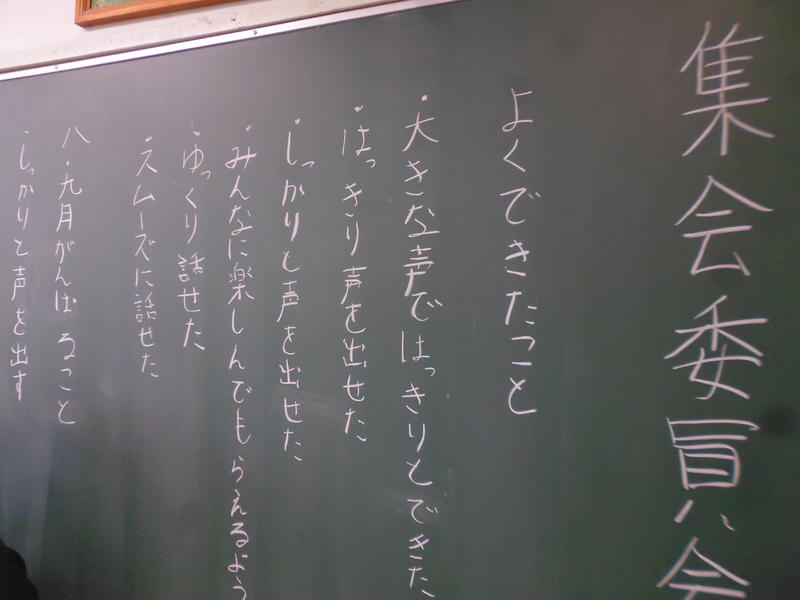 集会委員会
よくできたこと
・大きな声ではっきりとできた
・はっきり声を出せた
・しっかりと声を出せた
・みんなに楽しんでもらえるよう
・ゆっくり話せた
・スムーズに話せた
八・九月がんばること
・しっかりと声を出す